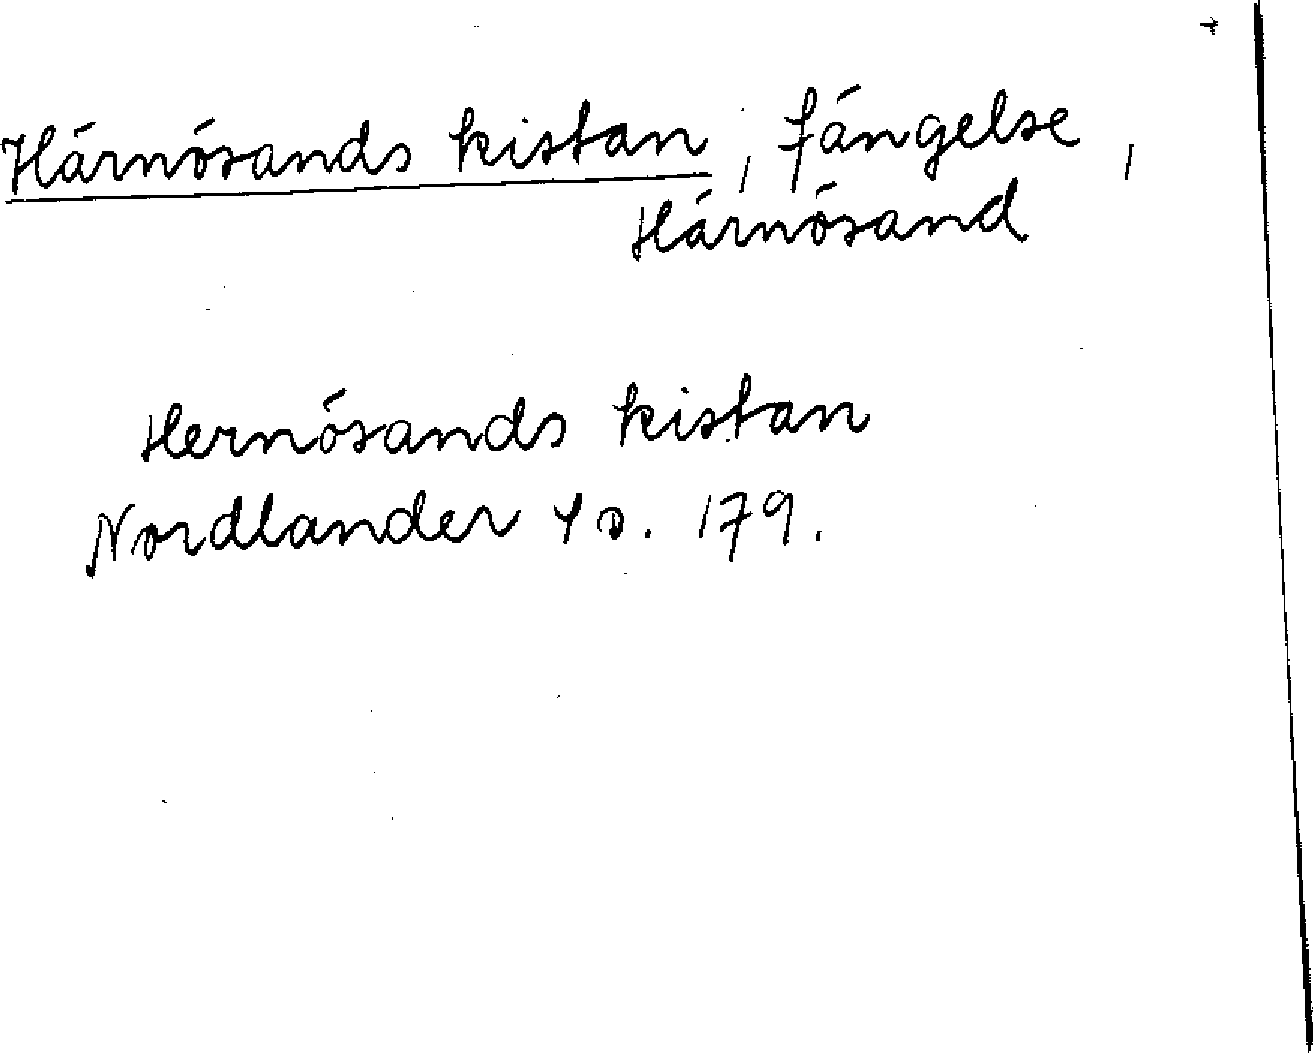 Härnösands kistan, fängelse,
Härnösand
Hernösands kistan
Nordlander 4 s. 179.